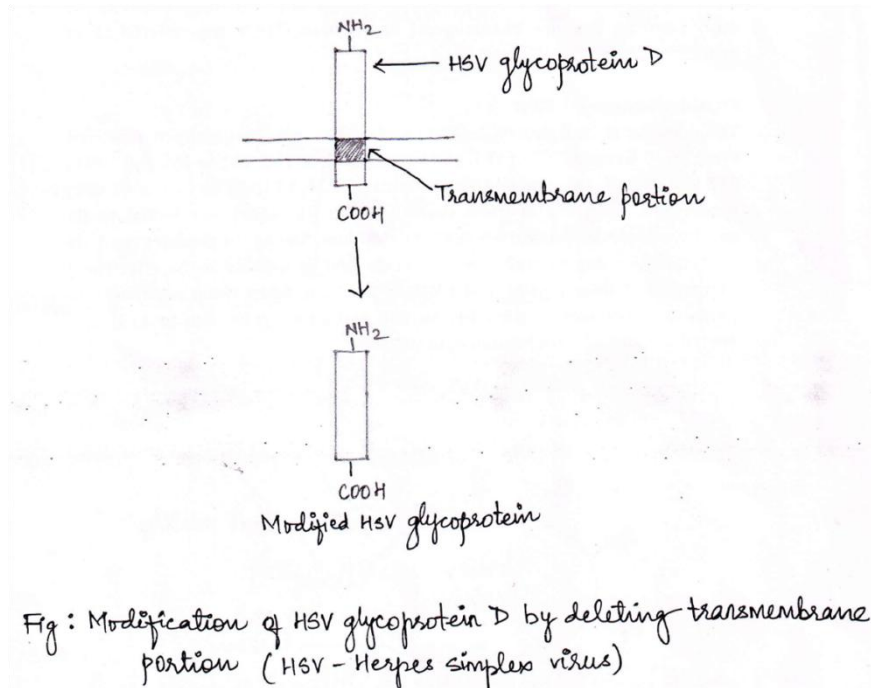 NH2
HSV glycoprotein D
Transmembrane portion
COOH
NH2
COOH
Modified HSV glycoprotein
Fig : Modification of HSV glycoprotein D by deleting transmembrane
portion (HSV - Herpes simplex virus)